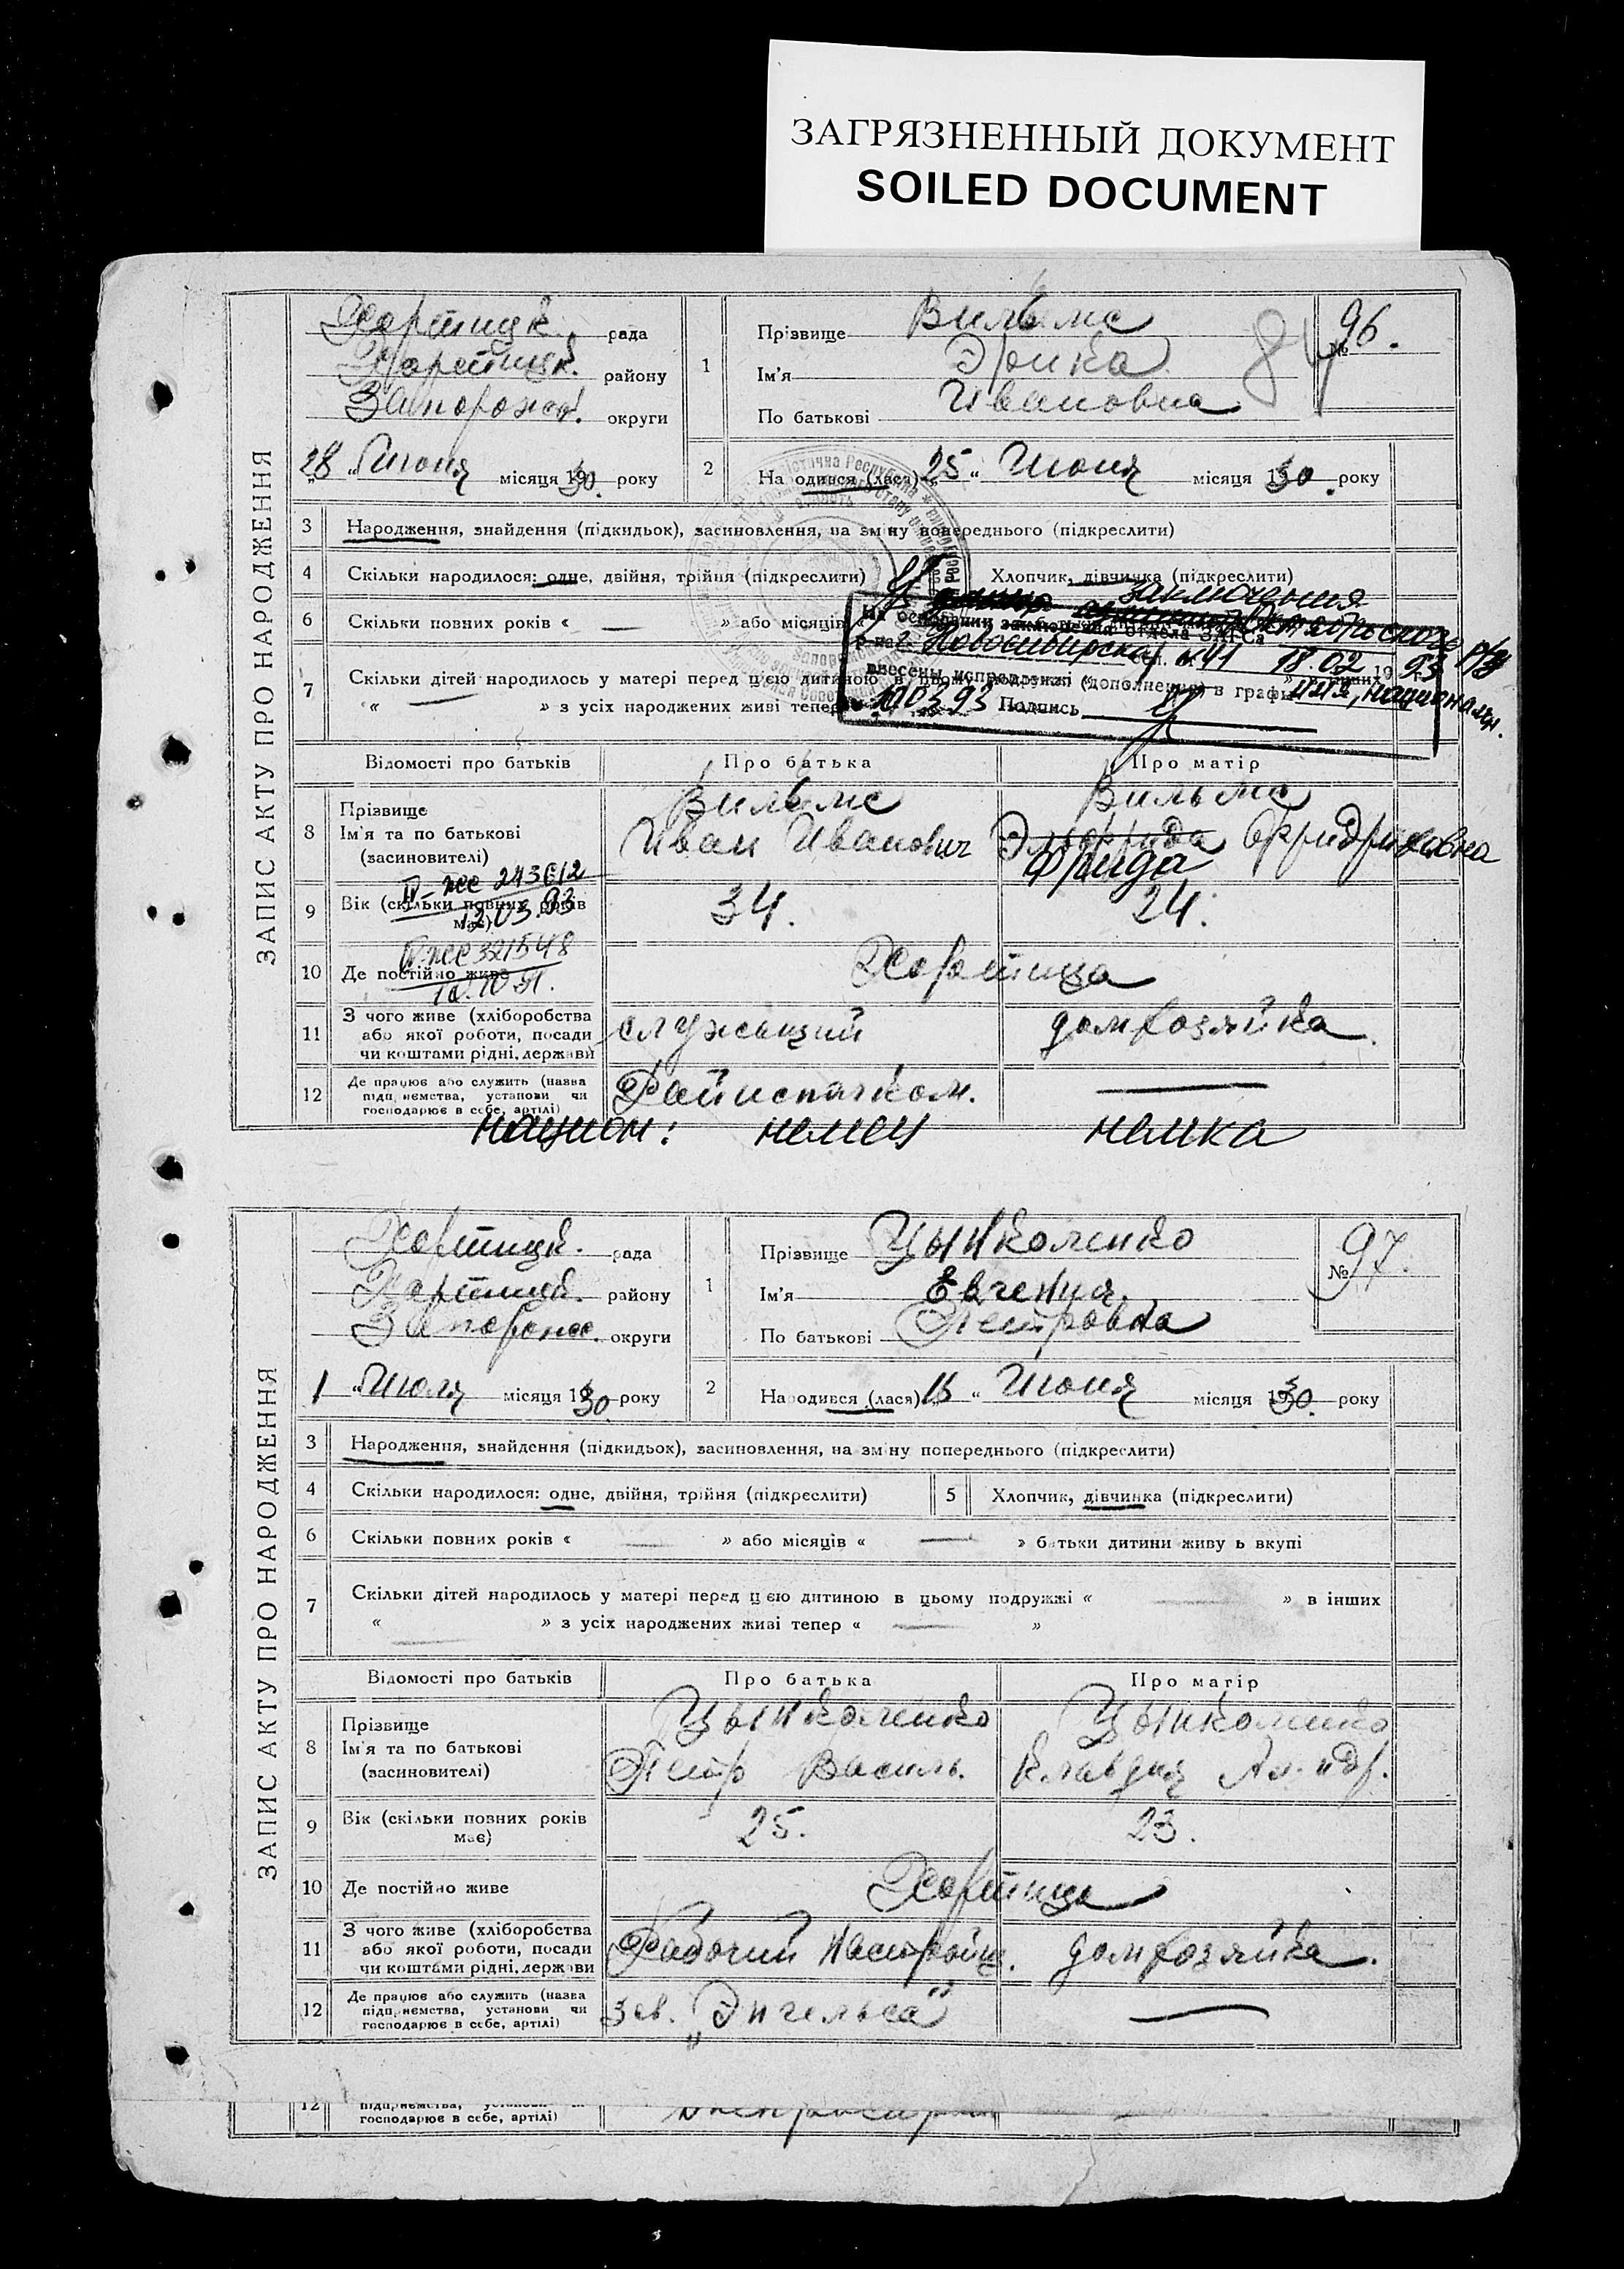 ЗАГРЯЗНЕННЫЙ ДОКУМЕНТ
SOILED DOCUMENT
ЗАПИС АКТУ ПРО НАРОДЖЕННЯ
Хортицк. рада
Хортицк. району
Запорожск. округи
28 "Июня місяця 1930. року
1
Прізвище Вильмс
Ім'я Эрика
По батькові Ивановна
№ 96.
84
2 На одився (лася) "25" Июня місяця 1930. року
3 Народження, знайдення (підкидьок), засиновлення, на зміну попереднього (підкреслити)
4 Скільки народилося: одне, двійня, трійня (підкреслити) Хлопчик, дівчинка (підкреслити)
заключения
6 Скільки повних років « » або місяців
На основании заключения отдела ЗАГСа
р-на г. Новосибирска № 41 18.02 1993
7 Скільки дітей народилось у матері перед цією дитиною в цьому
« — » з усіх народжених живі тепер
внесены исправления (дополнения) в графы имя, национальн.
10.03.93 Подпись
Відомості про батьків Про батька Про матір
8 Прізвище
Ім'я та по батькові
(засиновителі)
Вильмс
Иван Иванович
Вильмс
Эльфрида Фридриховна
Фрида
II-ЖС 243612
12.03.93
9 Вік (скільки повних років має) 34. 24.
321548
10 Де постійно живе Хортица
11 З чого живе (хліборобства
або якої роботи, посади
чи коштами рідні, держави
служащий домхозяйка.
12 Де працює або служить (назва
підприємства, установи чи
господарює в себе, артілі)
Райисполком. —
национ: немец немка
ЗАПИС АКТУ ПРО НАРОДЖЕННЯ
Хортицк. рада
Хортицк. району
Запорож. округи
1 "Июля місяця 1930. року
1
Прізвище Цынколенко
Ім'я Евгения
По батькові Петровна
№ 97.
2 Народився (лася) 15 " Июня місяця 1930. року
3 Народження, знайдення (підкидьок), засиновлення, на зміну попереднього (підкреслити)
4 Скільки народилося: одне, двійня, трійня (підкреслити) 5 Хлопчик, дівчинка (підкреслити)
6 Скільки повних років « — » або місяців « — » батьки дитини живуть вкупі
7 Скільки дітей народилось у матері перед цією дитиною в цьому подружжі « — » в інших
« — » з усіх народжених живі тепер « — »
Відомості про батьків Про батька Про матір
8 Прізвище
Ім'я та по батькові
(засиновителі)
Цынколенко
Петр Василь.
Цынколенко
Клавдия
9 Вік (скільки повних років
має)
25. 23.
10 Де постійно живе Хортица
11 З чого живе (хліборобства
або якої роботи, посади
чи коштами рідні, держави
Рабочий домхозяйка.
12 Де працює або служить (назва
підприємства, установи чи
господарює в себе, артілі)
зав. „Энгельса" —
12 підприємства, установи чи
господарює в себе, артілі)